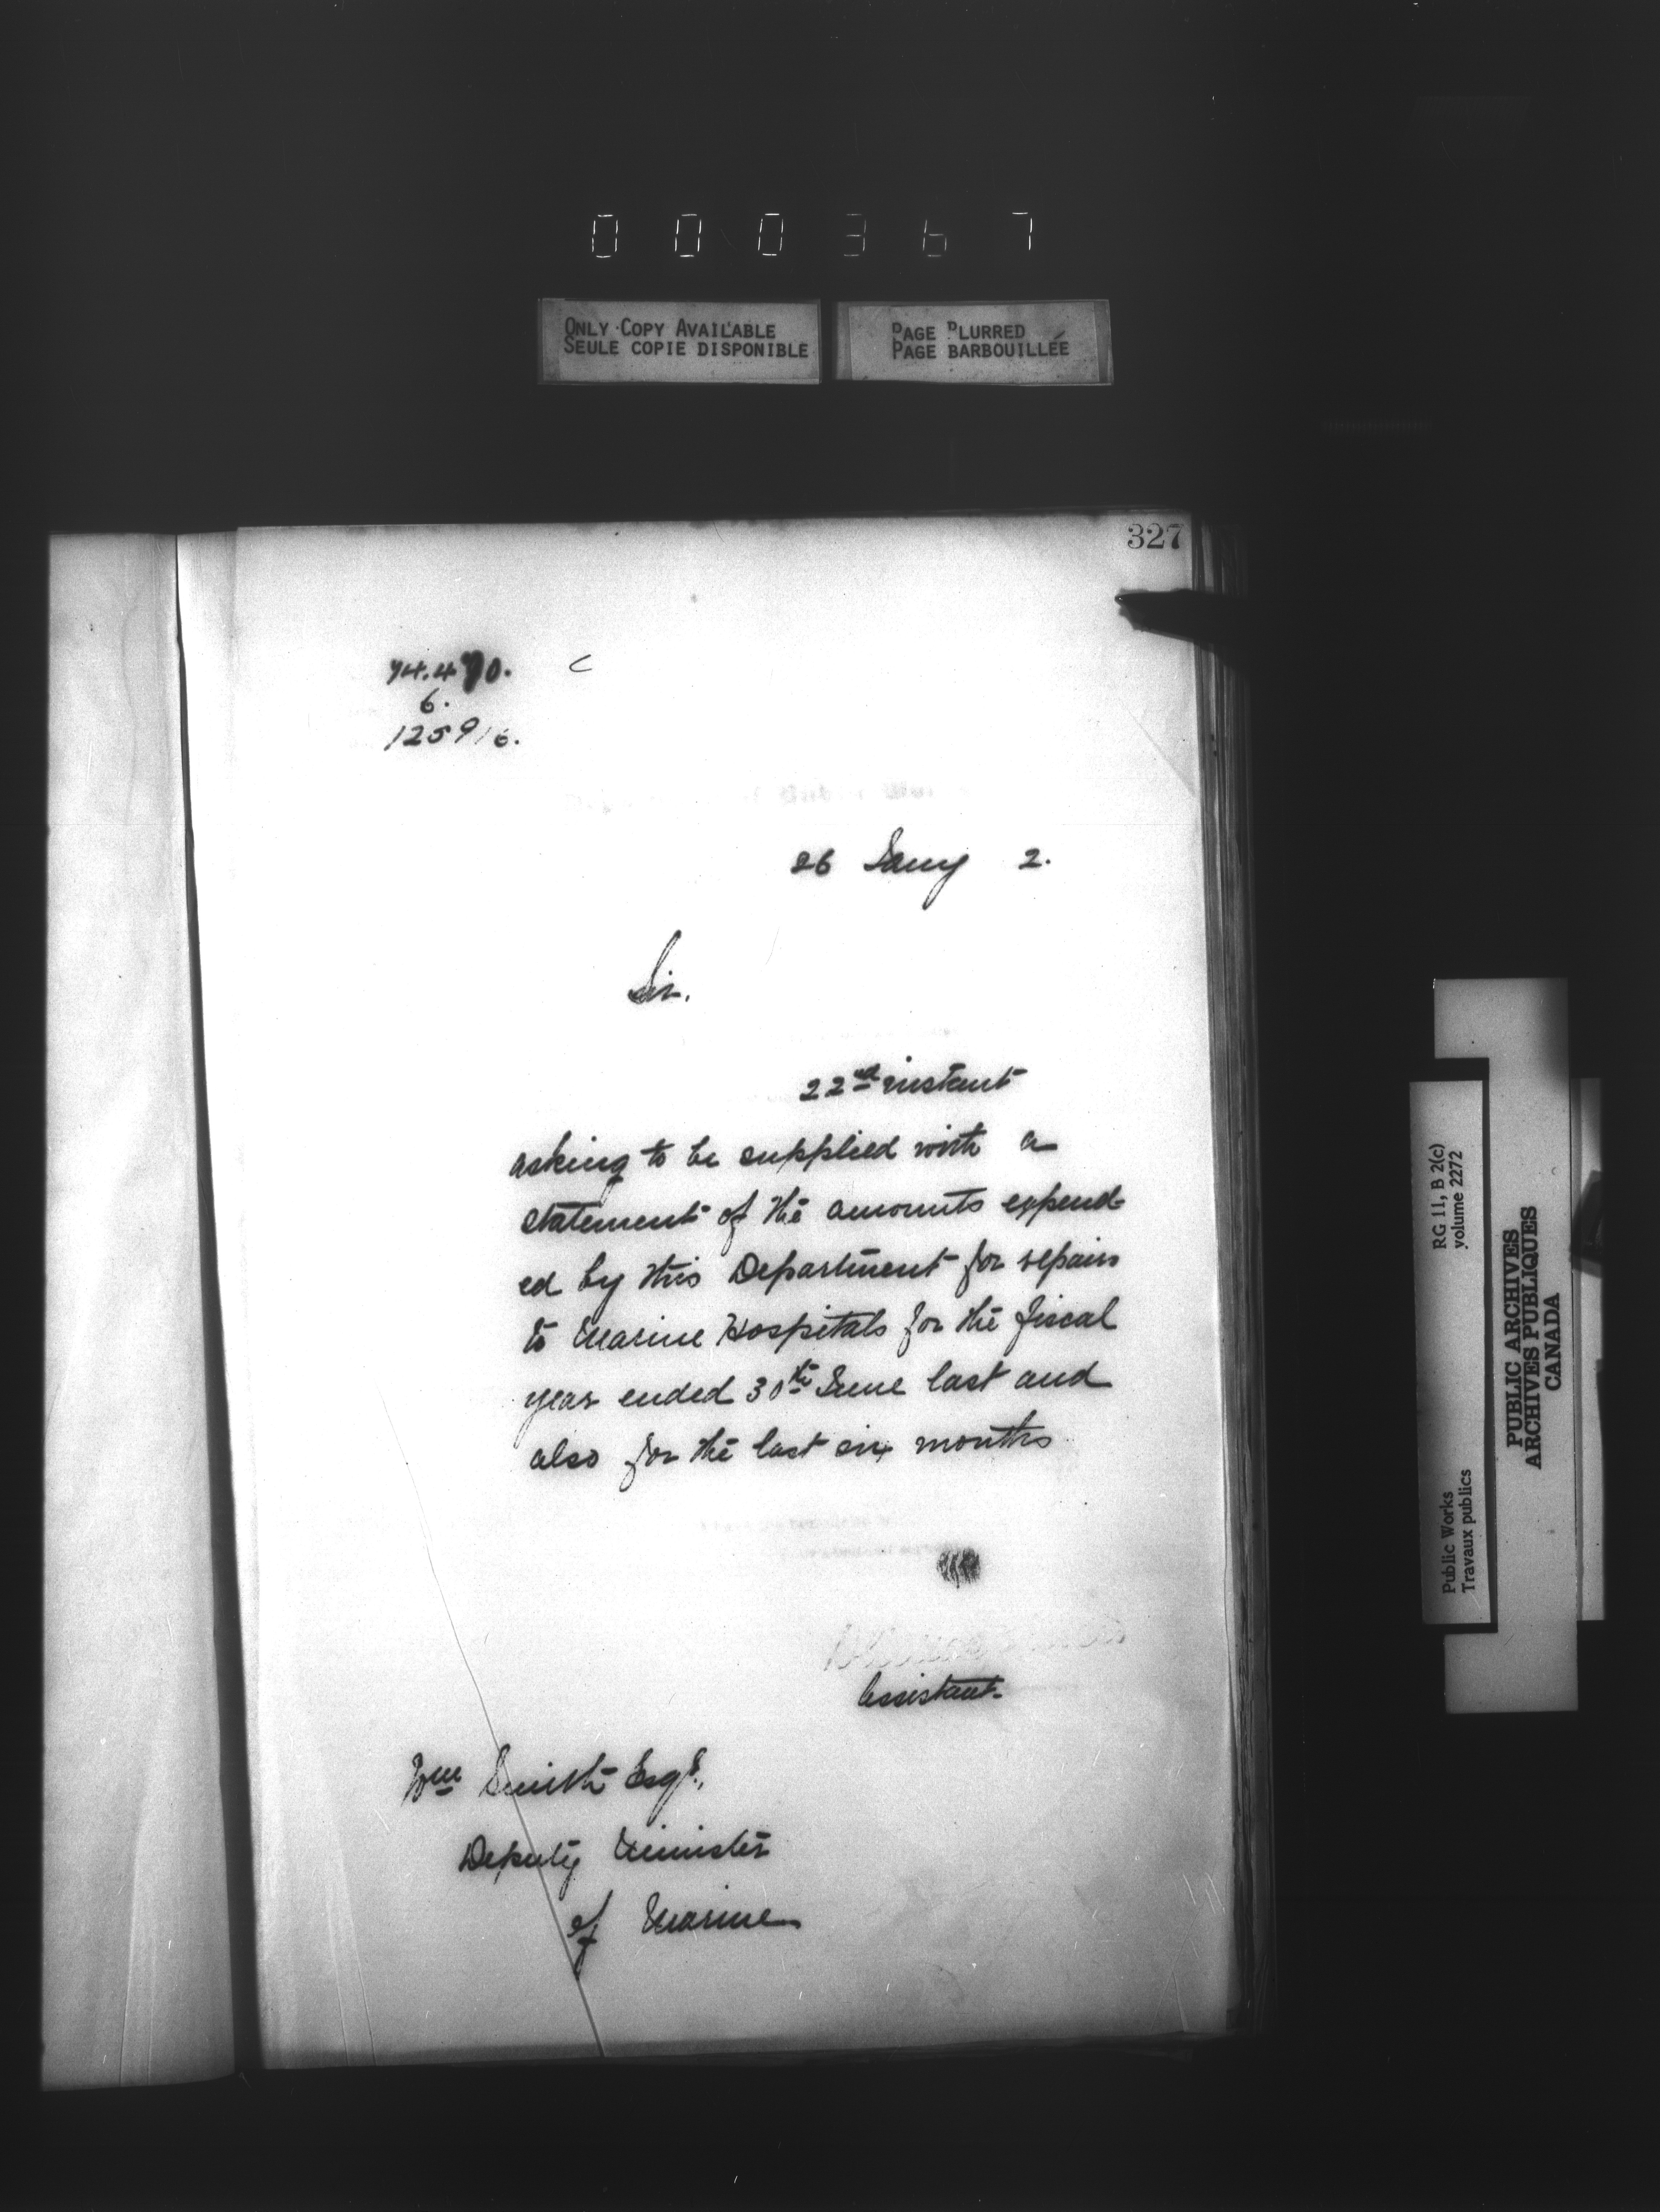 000367
ONLY COPY AVAILABLE
SEULE COPIE DISPONIBLE
PAGE BLURRED
PAGE BARBOUILLÉE
327
74.470. C
6.
125916.
26 Jany 2.
Sir.
22nd instant
asking to be supplied with a
statement of the amounts expend-
ed by this Department for repairs
to Marine Hospitals for the fiscal
year ended 30th June last and
also for the last six months
Assistant
Wm Smith Esqr.,
Deputy Minister
of Marine
RG 11, B 2(c)
volume 2272
Public Works
Travaux publics
PUBLIC ARCHIVES
ARCHIVES PUBLIQUES
CANADA